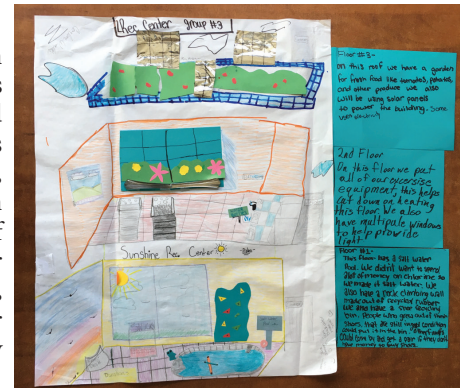 Rec Center group #3
Floor #3-
On this roof we have a garden
for fresh food like tomatoes, potatoes,
and other produce we also
will be using solar panels
to power the building. Some
2nd Floor
On this floor we put
all of our excersise
equipment, this helps
cut down on heating
this floor. We also
have multipale windows
to help provide
light
Sunshine Rec Center
Floor #1-
This floor has a salt water
Pool. We didn't want to spend
alot of money on chlorine so
we made it salt water. We
also have a rock climbing wall
made out of recycled rubber.
We also have a shoe recycling
bin. People who grew out of their
shoes, that are still in good condition
could put it in the bin.